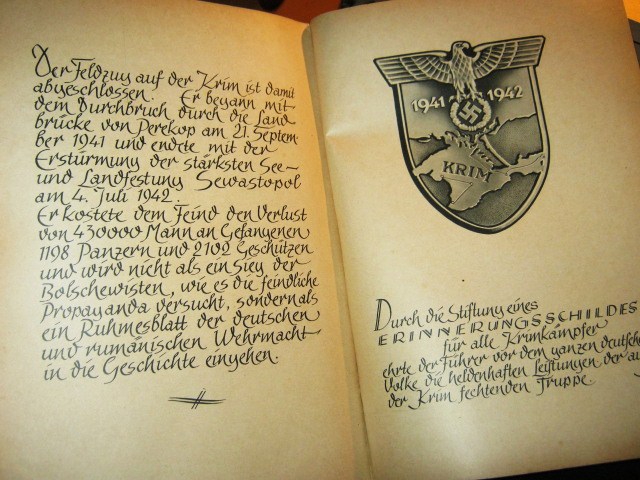 Der Feldzug auf der Krim ist damit
abgeschlossen. Er begann mit
dem Durchbruch durch die Land
brücke von Perekop am 21. Septem
ber 1941 und endete mit der
Erstürmung der stärksten See-
und Landfestung Sewastopol
am 4. Juli 1942.
Er kostete dem Feind den Verlust
von 430000 Mann an Gefangenen
1198 Panzern und 2102 Geschützen
und wird nicht als ein Sieg der
Bolschewisten, wie es die feindliche
Propaganda versucht, sondern als
ein Ruhmesblatt der deutschen
und rumänischen Wehrmacht
in die Geschichte eingehen.
1941 1942
KRIM
Durch die Stiftung eines
ERINNERUNGSSCHILDES
für alle Krimkämpfer
ehrte der Führer vor dem ganzen deutsche
Volke die heldenhaften Leistungen der au
der Krim fechtenden Truppe.